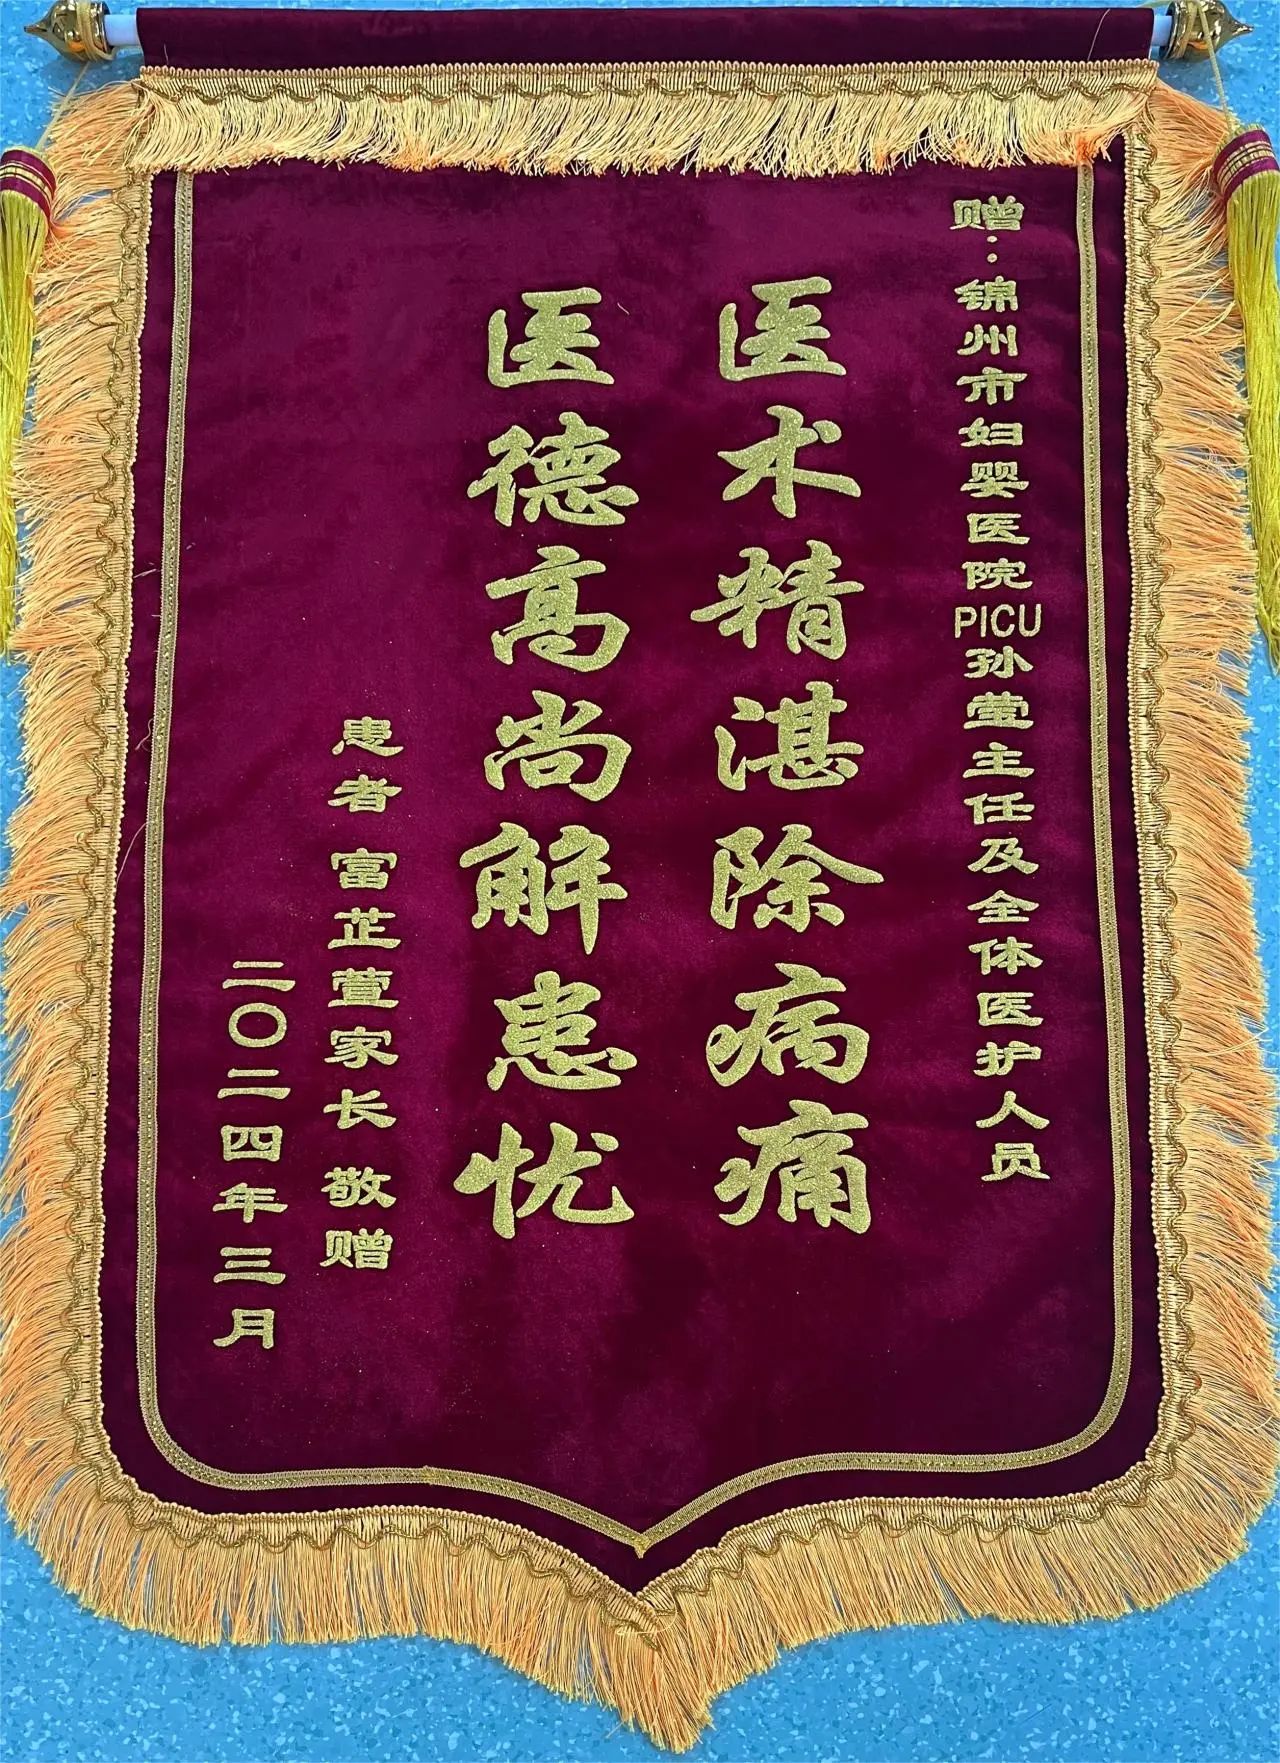 赠：锦州市妇婴医院PICU孙莹主任及全体医护人员
医术精湛除病痛
医德高尚解患忧
患者 富芷萱家长 敬赠
二〇二四年三月